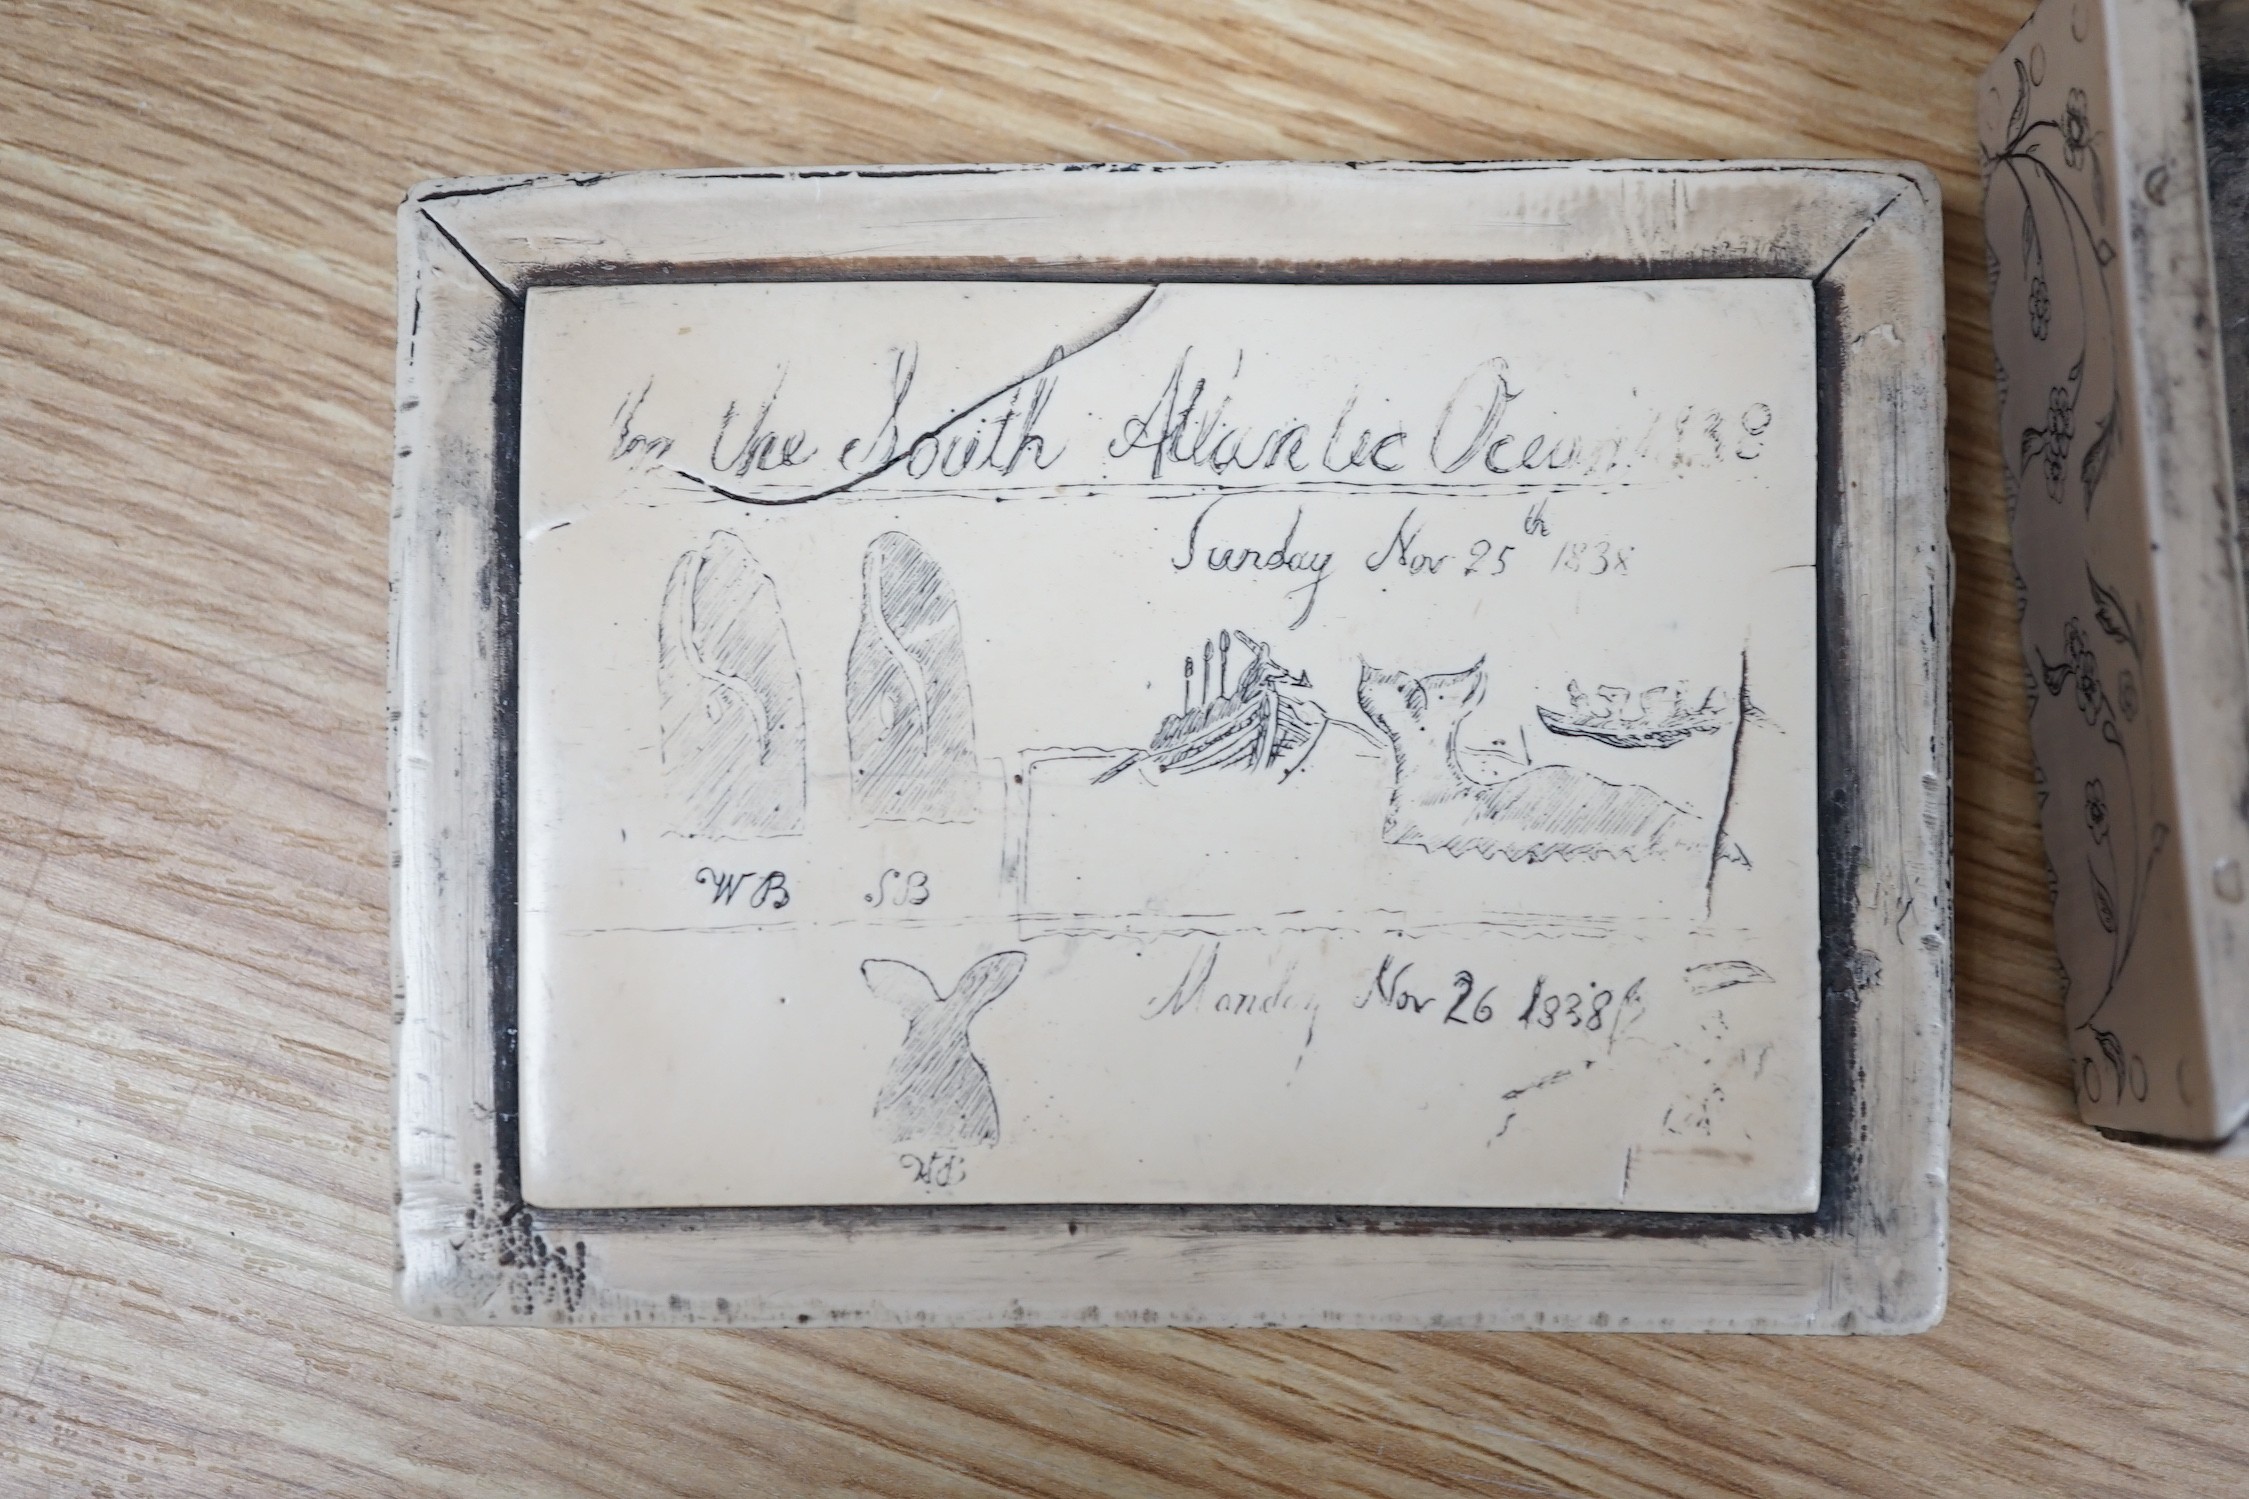 In the South Atlantic Ocean 1838
Sunday Nov 25th 1838
WB SB
Monday Nov 26 1838
WB